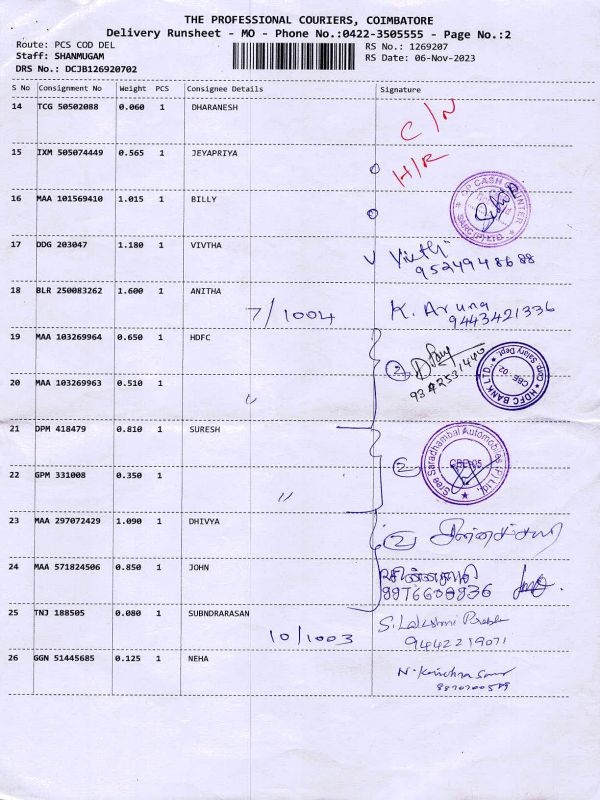 THE PROFESSIONAL COURIERS, COIMBATORE
Delivery Runsheet - MO - Phone No.:0422-3505555 - Page No.:2
Route: PCS COD DEL
RS No.: 1269207
Staff: SHANMUGAM
RS Date: 06-Nov-2023
DRS No.: DCJB126920702
S No Consignment No Weight PCS Consignee Details Signature
14 TCG 50502088 0.060 1 DHARANESH C/N
15 IXM 505074449 0.565 1 JEYAPRIYA H/R
16 MAA 101569410 1.015 1 BILLY
CASH COUNTER
SARC (P) LTD.
17 DDG 203047 1.180 1 VIVTHA
9524948688
18 BLR 250083262 1.600 1 ANITHA K. Aruna
7/1004 9443421336
19 MAA 103269964 0.650 1 HDFC 2
HDFC BANK LTD. Salary Dept.
CBE-02
20 MAA 103269963 0.510 1 "
21 DPM 418479 0.810 1 SURESH 2
Sree Saradhambal Automobiles (P) Ltd.
22 GPM 331008 0.350 1 "
23 MAA 297072429 1.090 1 DHIVYA 2
24 MAA 571824506 0.850 1 JOHN
25 TNJ 188505 0.080 1 SUBNDRARASAN S. Lakshmi
10/1003 9442219071
26 GGN 51445685 0.125 1 NEHA